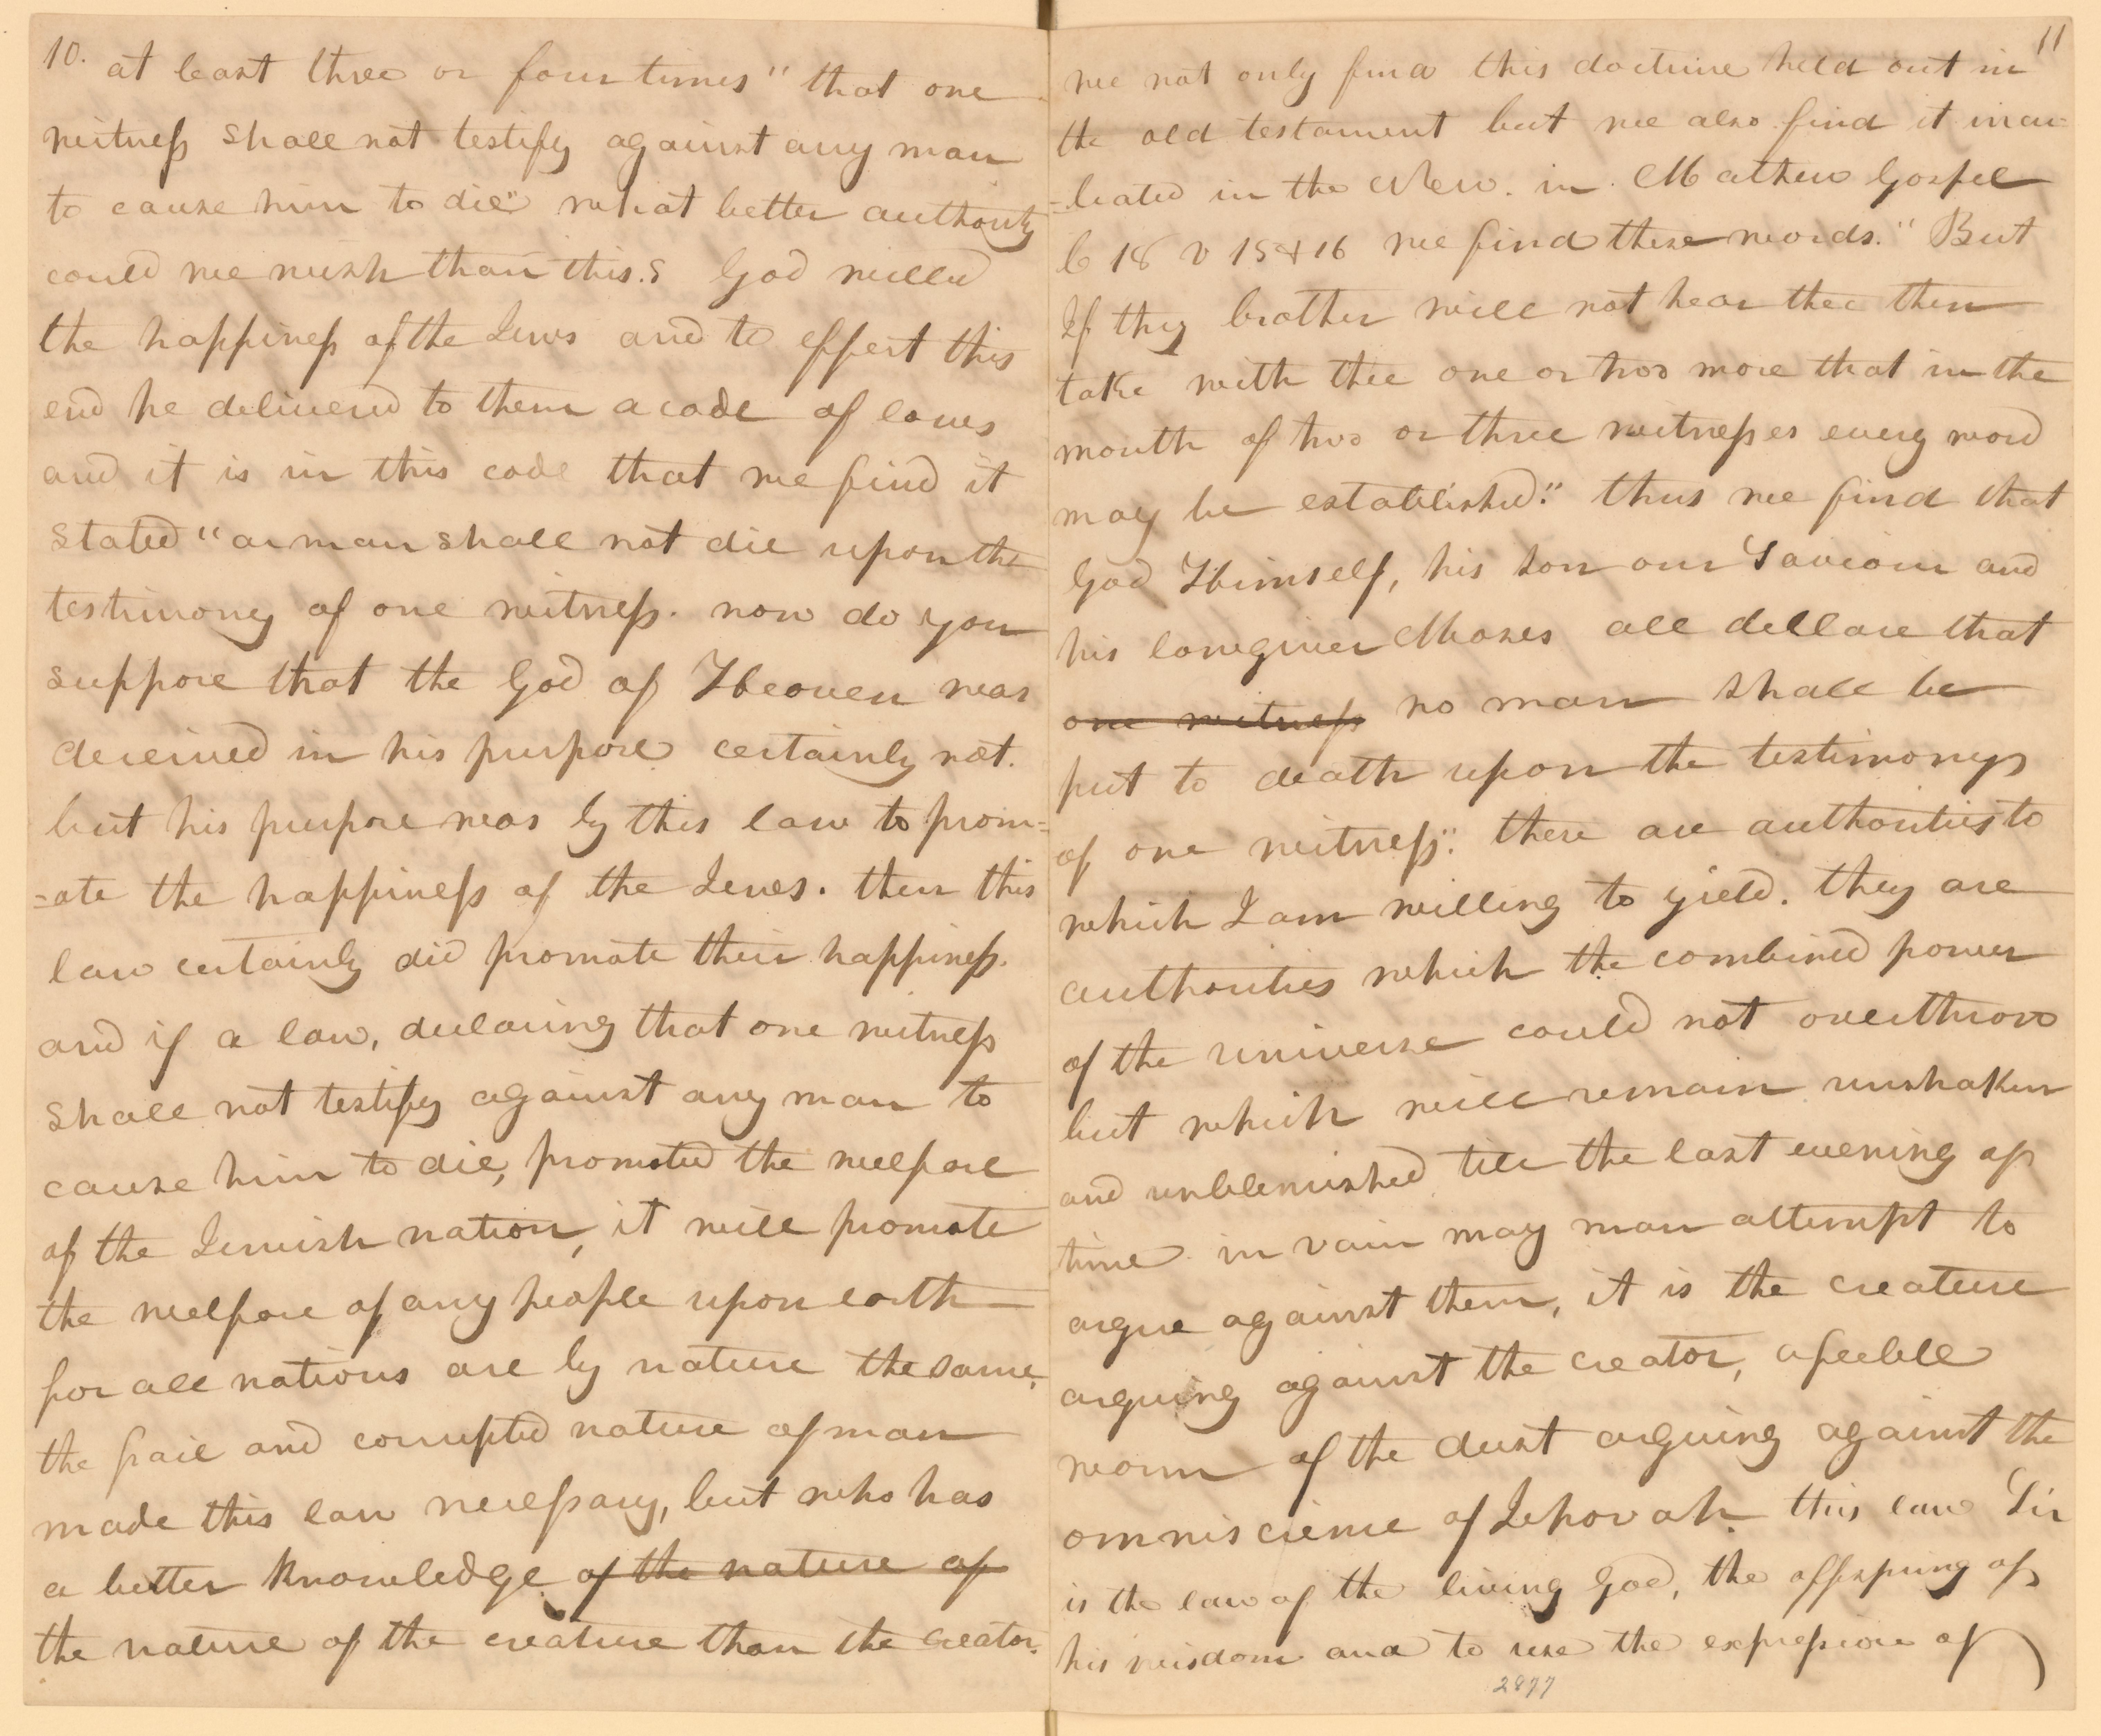 10.
at least three or four times" that one
witness shall not testify against any man
to cause him to die" what better authority
could we wish than this.? God willed
the happiness of the Jews and to effect this
end he delivered to them a code of laws
and it is in this code that we find it
stated "a man shall not die upon the
testimony of one witness. now do you
suppose that the God of Heaven was
deceived in his purpose certainly not.
but his purpose was by this law to prom-
-ote the happiness of the Jews. then this
law certainly did promote their happiness.
and if a law, declaring that one witness
shall not testify against any man to
cause him to die, promoted the welfare
of the Jewish nation, it will promote
the welfare of any people upon earth
for all nations are by nature the same,
the frail and corrupted nature of man
made this law necessary, but who has
a better knowledge of the nature of
the nature of the creature than the creator.
11
we not only find this doctrine held out in
the old testament but we also find it incu-
-lcated in the New. in Mathew Gospel
C 18 v 15 & 16 we find these words." But
If thy brother will not hear thee then
take with thee one or two more that in the
mouth of two or three witnesses every word
may be established." thus we find that
God Himself, his son our Saviour and
his lawgiver Moses all decllare that
one witness no man shall be
put to death upon the testimony
of one witness." these are authorities to
which I am willing to yield. they are
authorities which the combined power
of the universe could not overthrow
but which will remain unshaken
and unblemished till the last evening of
time in vain may man attempt to
argue against them, it is the creature
arguing against the creator, a feeble
worm of the dust arguing against the
omniscience of Jehovah. this law Sir
is the law of the living God, the offspring of
his wisdom and to use the expression of
2877